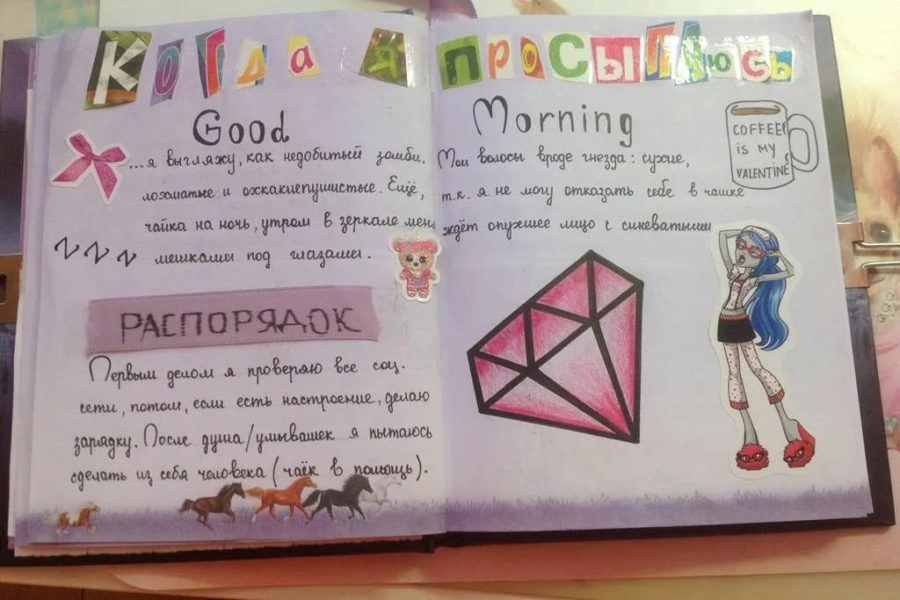 Когда я просыпаюсь
Good Morning
...я выгляжу, как недобитый зомби. Мои волосы вроде гнезда: сухие,
лохматые и охскакиепушистые. Ещё, т.к. я не могу отказать себе в чашке
чайка на ночь, утром в зеркале меня ждёт опухшее лицо с синеватыми
мешками под глазами.
COFFEE
is MY
VALENTINE
Z Z Z
РАСПОРЯДОК
Первым делом я проверяю все соц.
сети, потом, если есть настроение, делаю
зарядку. После душа/умывашек я пытаюсь
сделать из себя человека (чаёк в помощь).